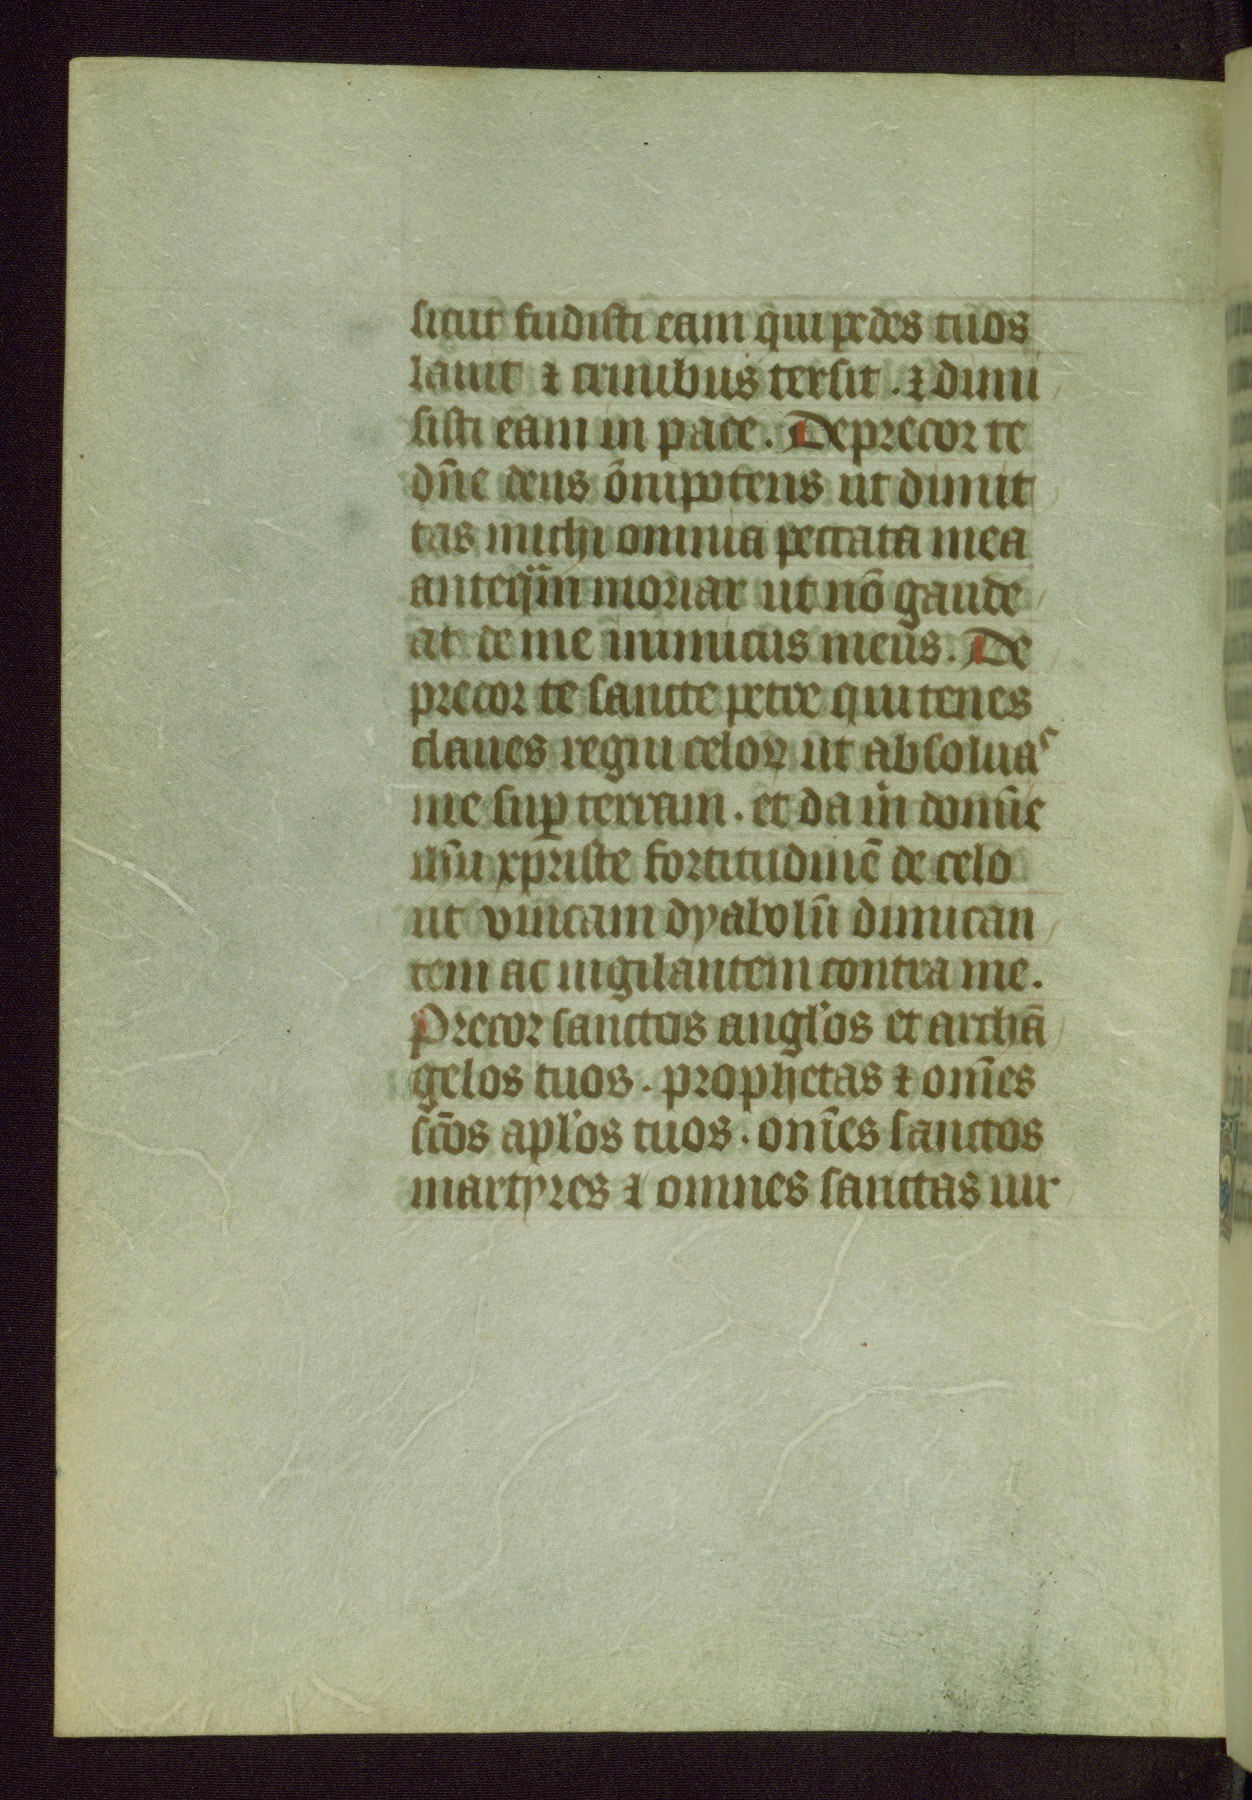 sicut fudisti eam qui pedes tuos
lauit ⁊ crinibus tersit . ⁊ dimi
sisti eam in pace . Deprecor te
dn̄e deus om̄ipotens ut dimit
tas michi omnia peccata mea
anteq̄m moriar ut nō gaude
at de me inimicus meus . De
precor te sancte petre qui tenes
claues regni celoꝝ ut absoluas
me suꝑ terram . et da m̄ domīe
ih̄u xpriste fortitudinē de celo
ut vincam dyabolū dimican
tem ac uigilantem contra me .
Precor sanctos angl'os et archā
gelos tuos . prophetas ⁊ om̄es
sc̄os apl'os tuos . om̄es sanctos
martyres ⁊ omnes sanctas uir